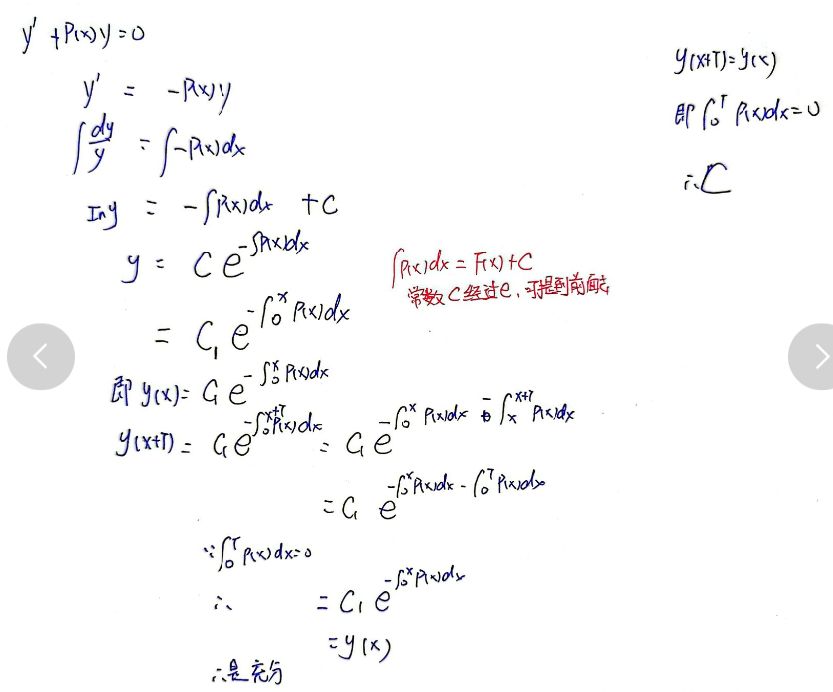 y' + P(x)y = 0
y' = -P(x)y
∫ dy/y = ∫ -P(x)dx
Iny = -∫P(x)dx + C
y = C e^{-∫P(x)dx}
∫P(x)dx = F(x)+C
常数C经过e,可提到前面去
= C₁ e^{-∫₀ˣ P(x)dx}
即 y(x) = C₁ e^{-∫₀ˣ P(x)dx}
y(x+T) = C₁ e^{-∫₀^{x+T} P(x)dx} = C₁ e^{-∫₀ˣ P(x)dx - ∫ₓ^{x+T} P(x)dx}
= C₁ e^{-∫₀ˣ P(x)dx - ∫₀ᵀ P(x)dx}
∵ ∫₀ᵀ P(x)dx = 0
∴ = C₁ e^{-∫₀ˣ P(x)dx}
= y(x)
∴是充分
y(x+T) = y(x)
即 ∫₀ᵀ P(x)dx = 0
∴ C